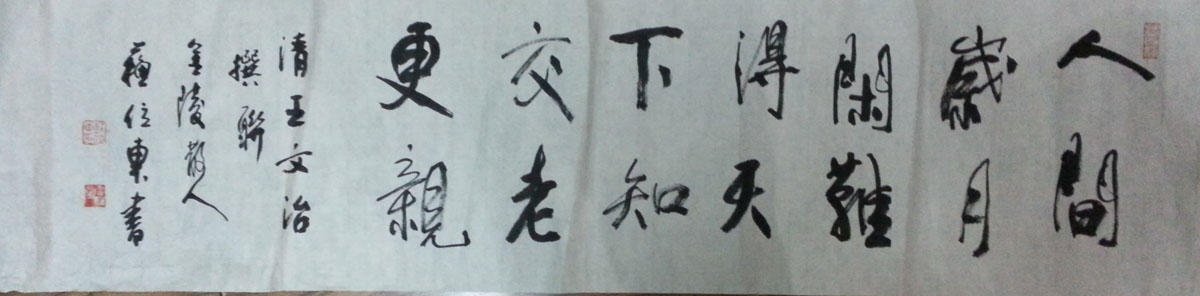 人間
歲月
閑難
得天
下知
交老
更親
清王文治
撰聯
金陵散人
蘇位東書